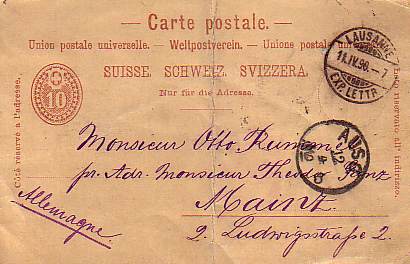 Carte postale.
Union postale universelle. — Weltpostverein. — Unione postale universale.
SUISSE. SCHWEIZ. SVIZZERA.
Nur für die Adresse.
Côté réservé à l'adresse.
10
Lato riservato all' indirizzo.
LAUSANNE
11.IV.96.-7
EXP. LETTR.
Monsieur Otto
pr. Adr. Monsieur Theodor
AUS
12
4
Mainz
2. Ludwigsstraße 2.
Allemagne.